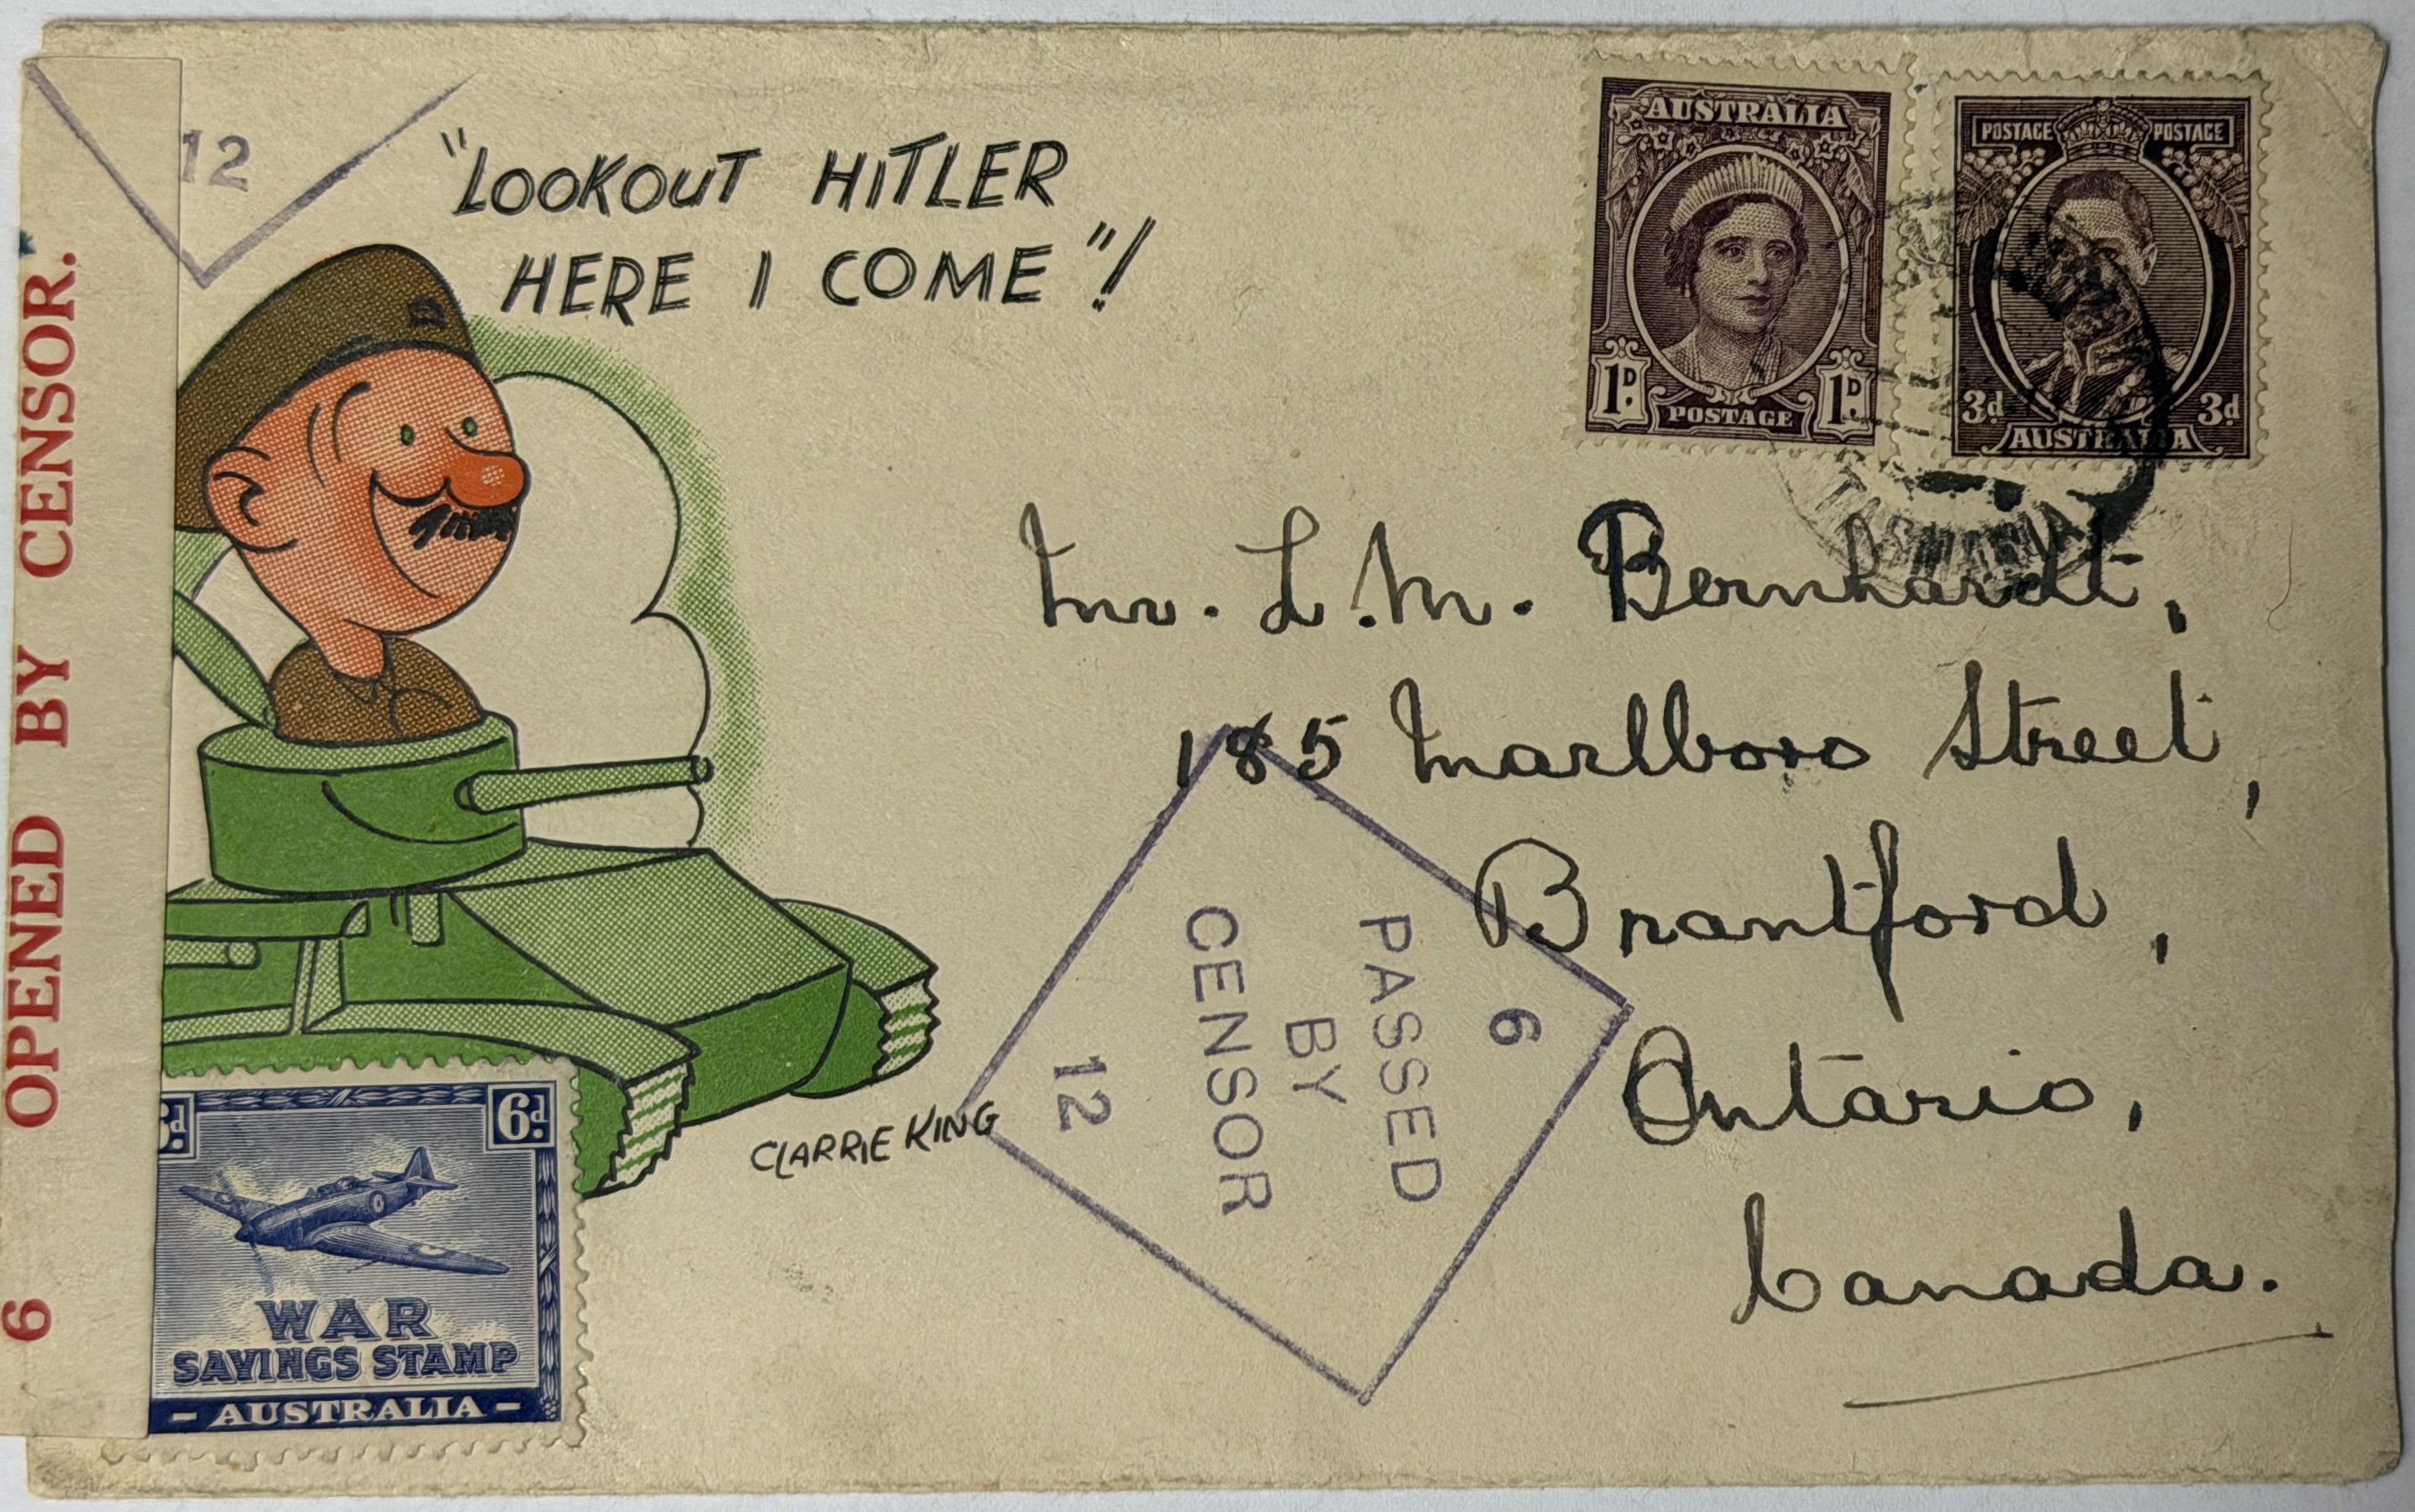 12
"LOOKOUT HITLER
HERE I COME"!
AUSTRALIA
1D. 1D.
POSTAGE
POSTAGE POSTAGE
3d 3d
AUSTRALIA
TASMANIA
Mr. L.M. Bernhardt,
185 Marlboro Street,
Brantford,
Ontario,
Canada.
6 OPENED BY CENSOR.
6
PASSED
BY
CENSOR
12
CLARRIE KING
6d. 6d.
WAR
SAVINGS STAMP
- AUSTRALIA -